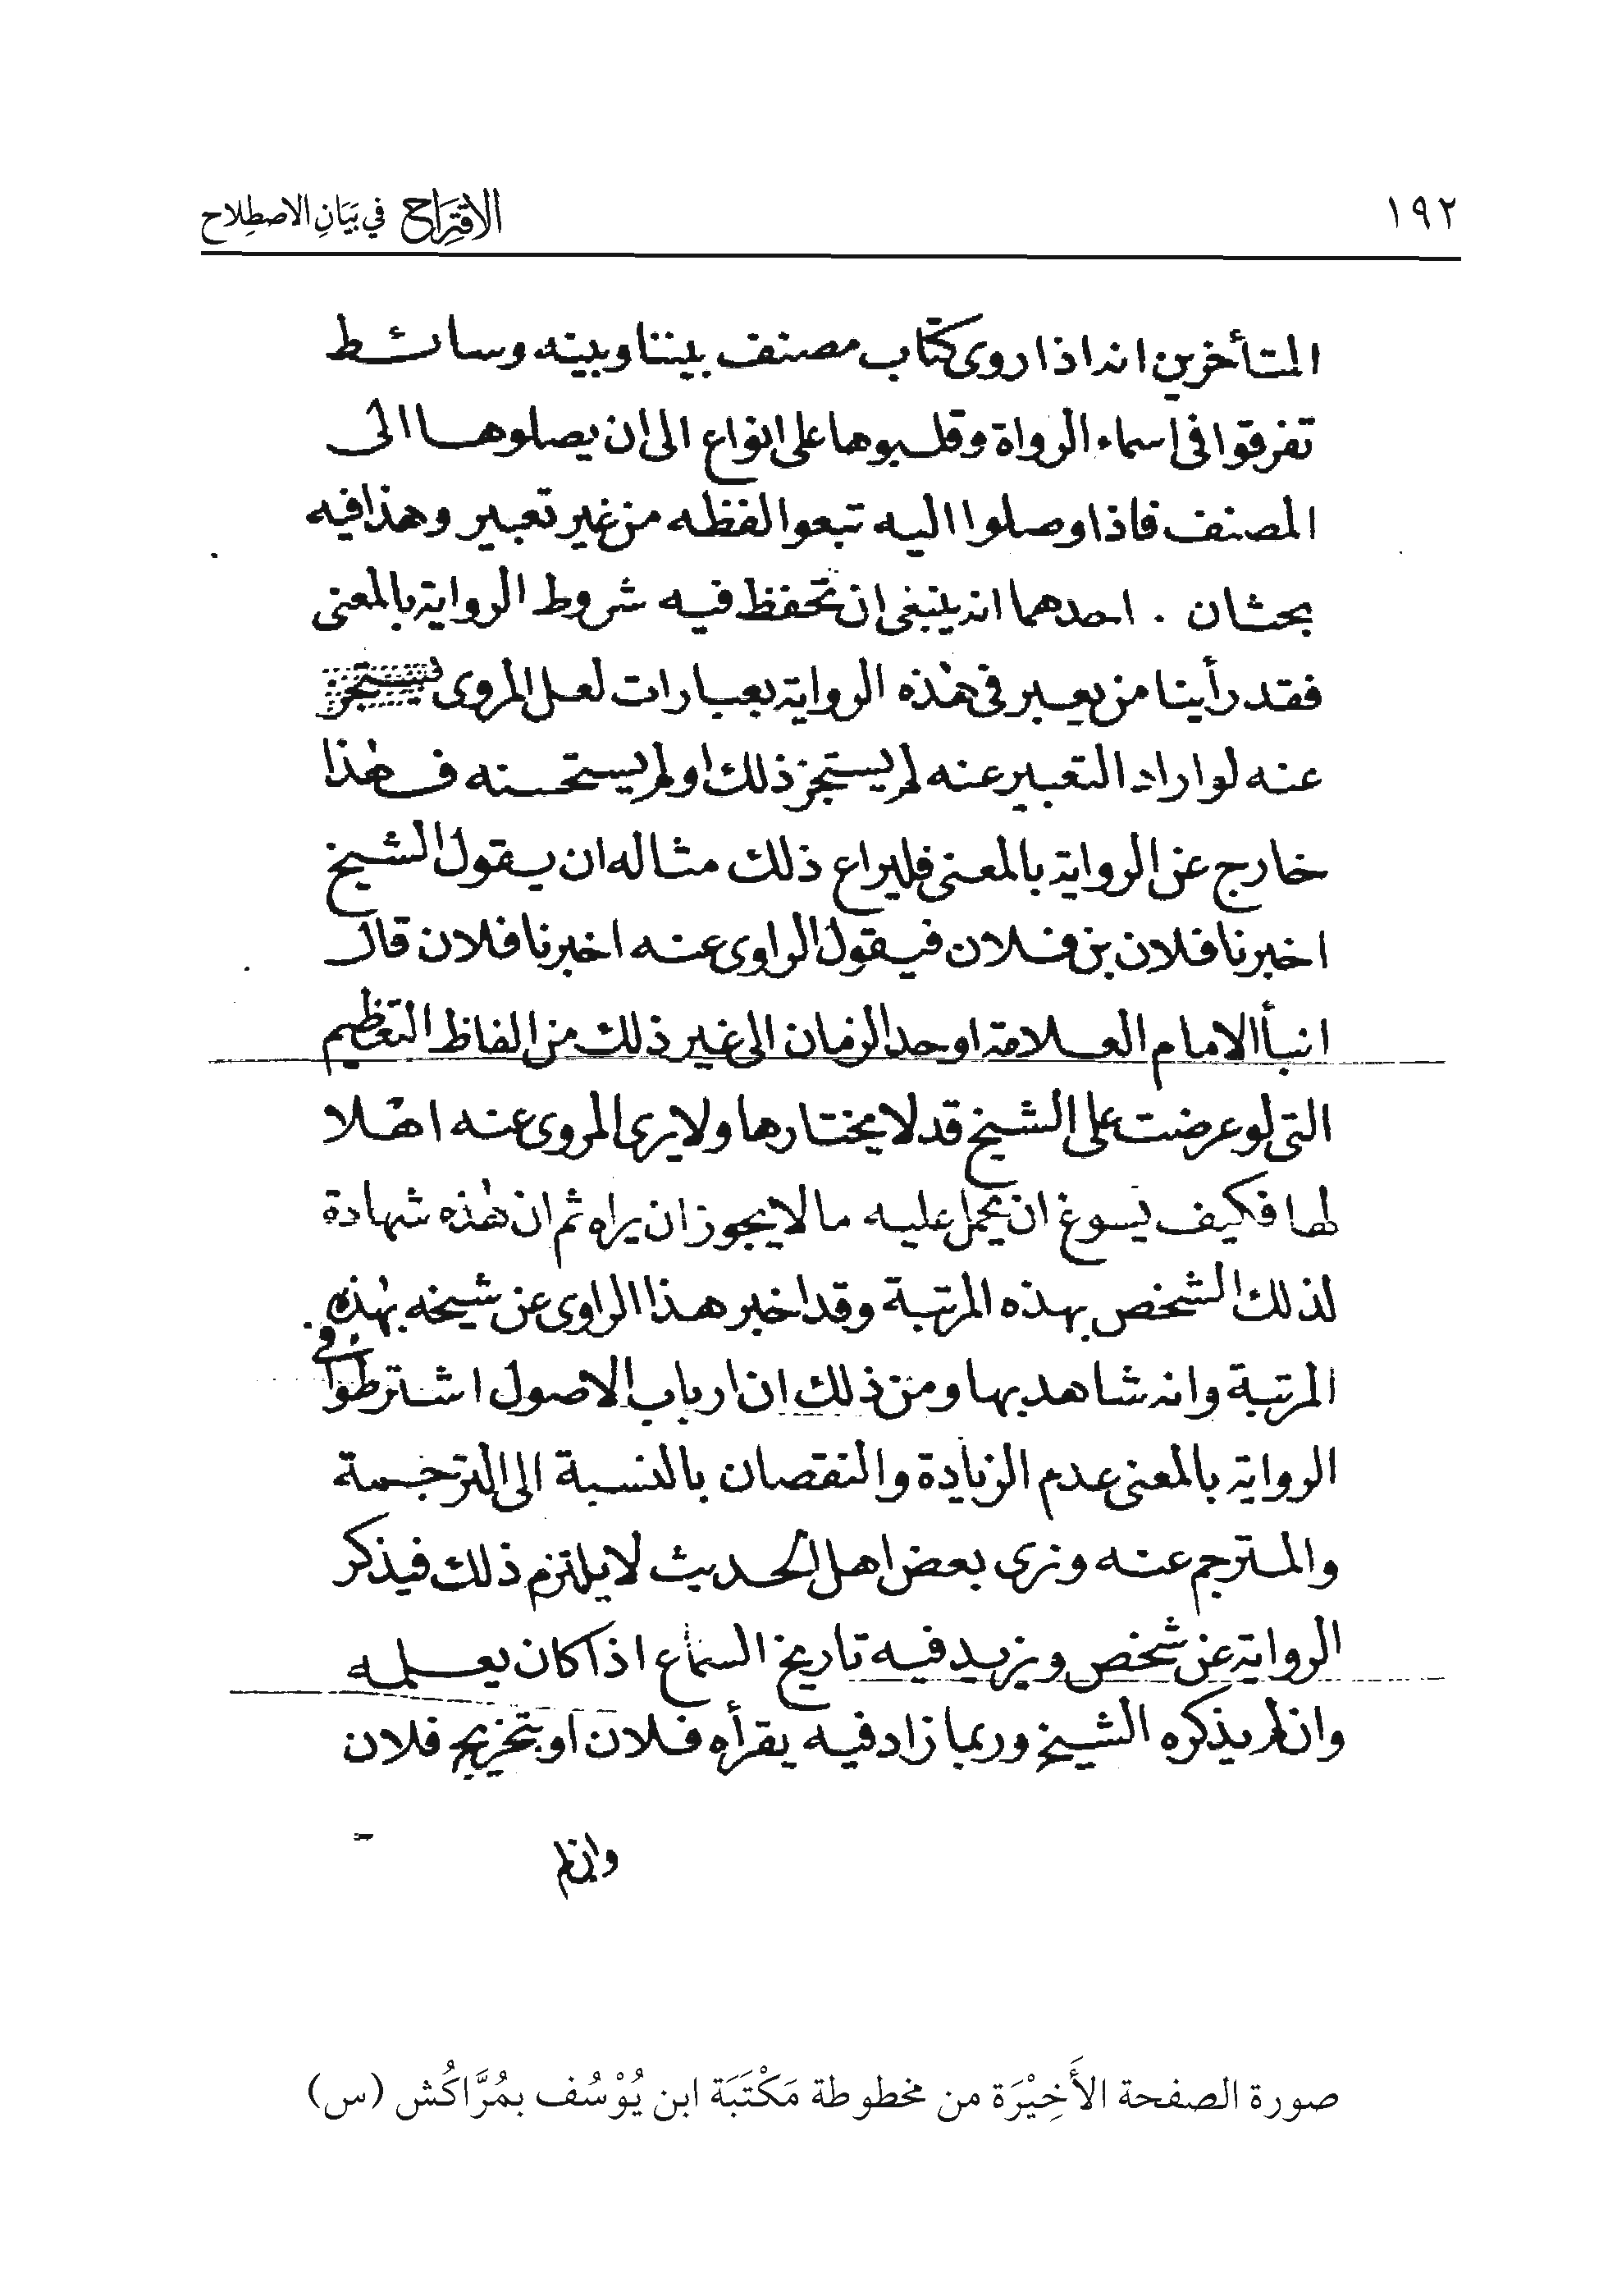 ١٩٢ الاقتِرَاح في بَيَانِ الاصطِلاح
المتأخرين انه اذا روى كتاب مصنف بيننا وبينه وسائط
تفرقوا فى اسماء الرواة وقلبوها على انواع الى ان يصلوها الى
المصنف فاذا وصلوا اليه تبعوا لفظه من غير تعبير وهذا فيه
بحثان . احدهما انه ينبغى ان تحفظ فيه شروط الرواية بالمعنى
فقد رأينا من يعبر فى هذه الرواية بعبارات لعل المروى ليستجز
عنه لو اراد التعبير عنه لم يستجز ذلك او لم يستحسنه فهذا
خارج عن الرواية بالمعنى فليراع ذلك مثاله ان يقول الشيخ
اخبرنا فلان بن فلان فيقول الراوى عنه اخبرنا فلان قال
انبأ الامام العلامة اوحد الزمان الى غير ذلك من الفاظ التعظيم
التى لو عرضت على الشيخ قد لا يختارها ولا يرى المروى عنه اهلا
لها فكيف يسوغ ان يحمل عليه ما لا يجوز ان يراه ثم ان هذه شهادة
لذلك الشخص بهذه المرتبة وقد اخبر هذا الراوى عن شيخه بهذه
المرتبة وانه شاهد بها ومن ذلك ان ارباب الاصول اشترطوا فى
الرواية بالمعنى عدم الزيادة والنقصان بالنسبة الى الترجمة
والمترجم عنه ونرى بعض اهل الحديث لا يلتزم ذلك فيذكر
الرواية عن شخص ويزيد فيه تاريخ السماع اذا كان يعلمه
وان لم يذكره الشيخ وربما زاد فيه يقرأه فلان او بتخريج فلان
وان لم
صورة الصفحة الأَخِيْرَة من مخطوطة مَكْتَبَة ابن يُوْسُف بمُرَّاكُش (س)